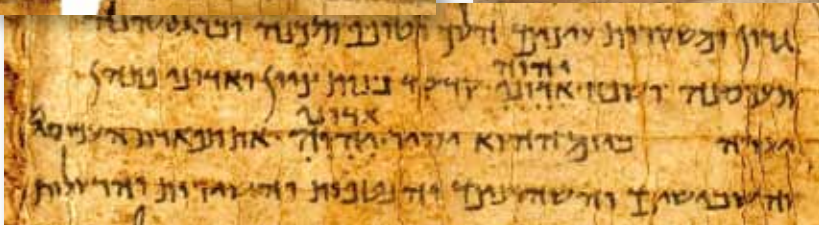 גרון ומשקרות עיניהן הלוך וטופף תלכנה וברגליהנה
יהוה
תעכסנה ושפח אדוני קדקד בנות ציון ואדוני פתהן
אדוני
יערה ביום ההוא יסיר יהוה את תפארת העכיסים
והשבישים והשהרונים והנטפות והשירות והרעלות